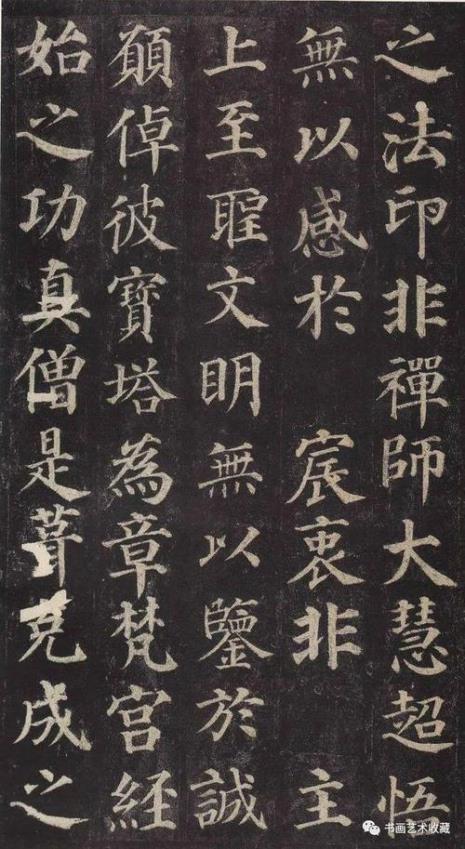 之法印非禪師大慧超悟
無以感於 宸衷非 主
上至聖文明無以鑒於誠
願倬彼寶塔為章梵宮經
始之功真僧是葺克成之
书画艺术收藏